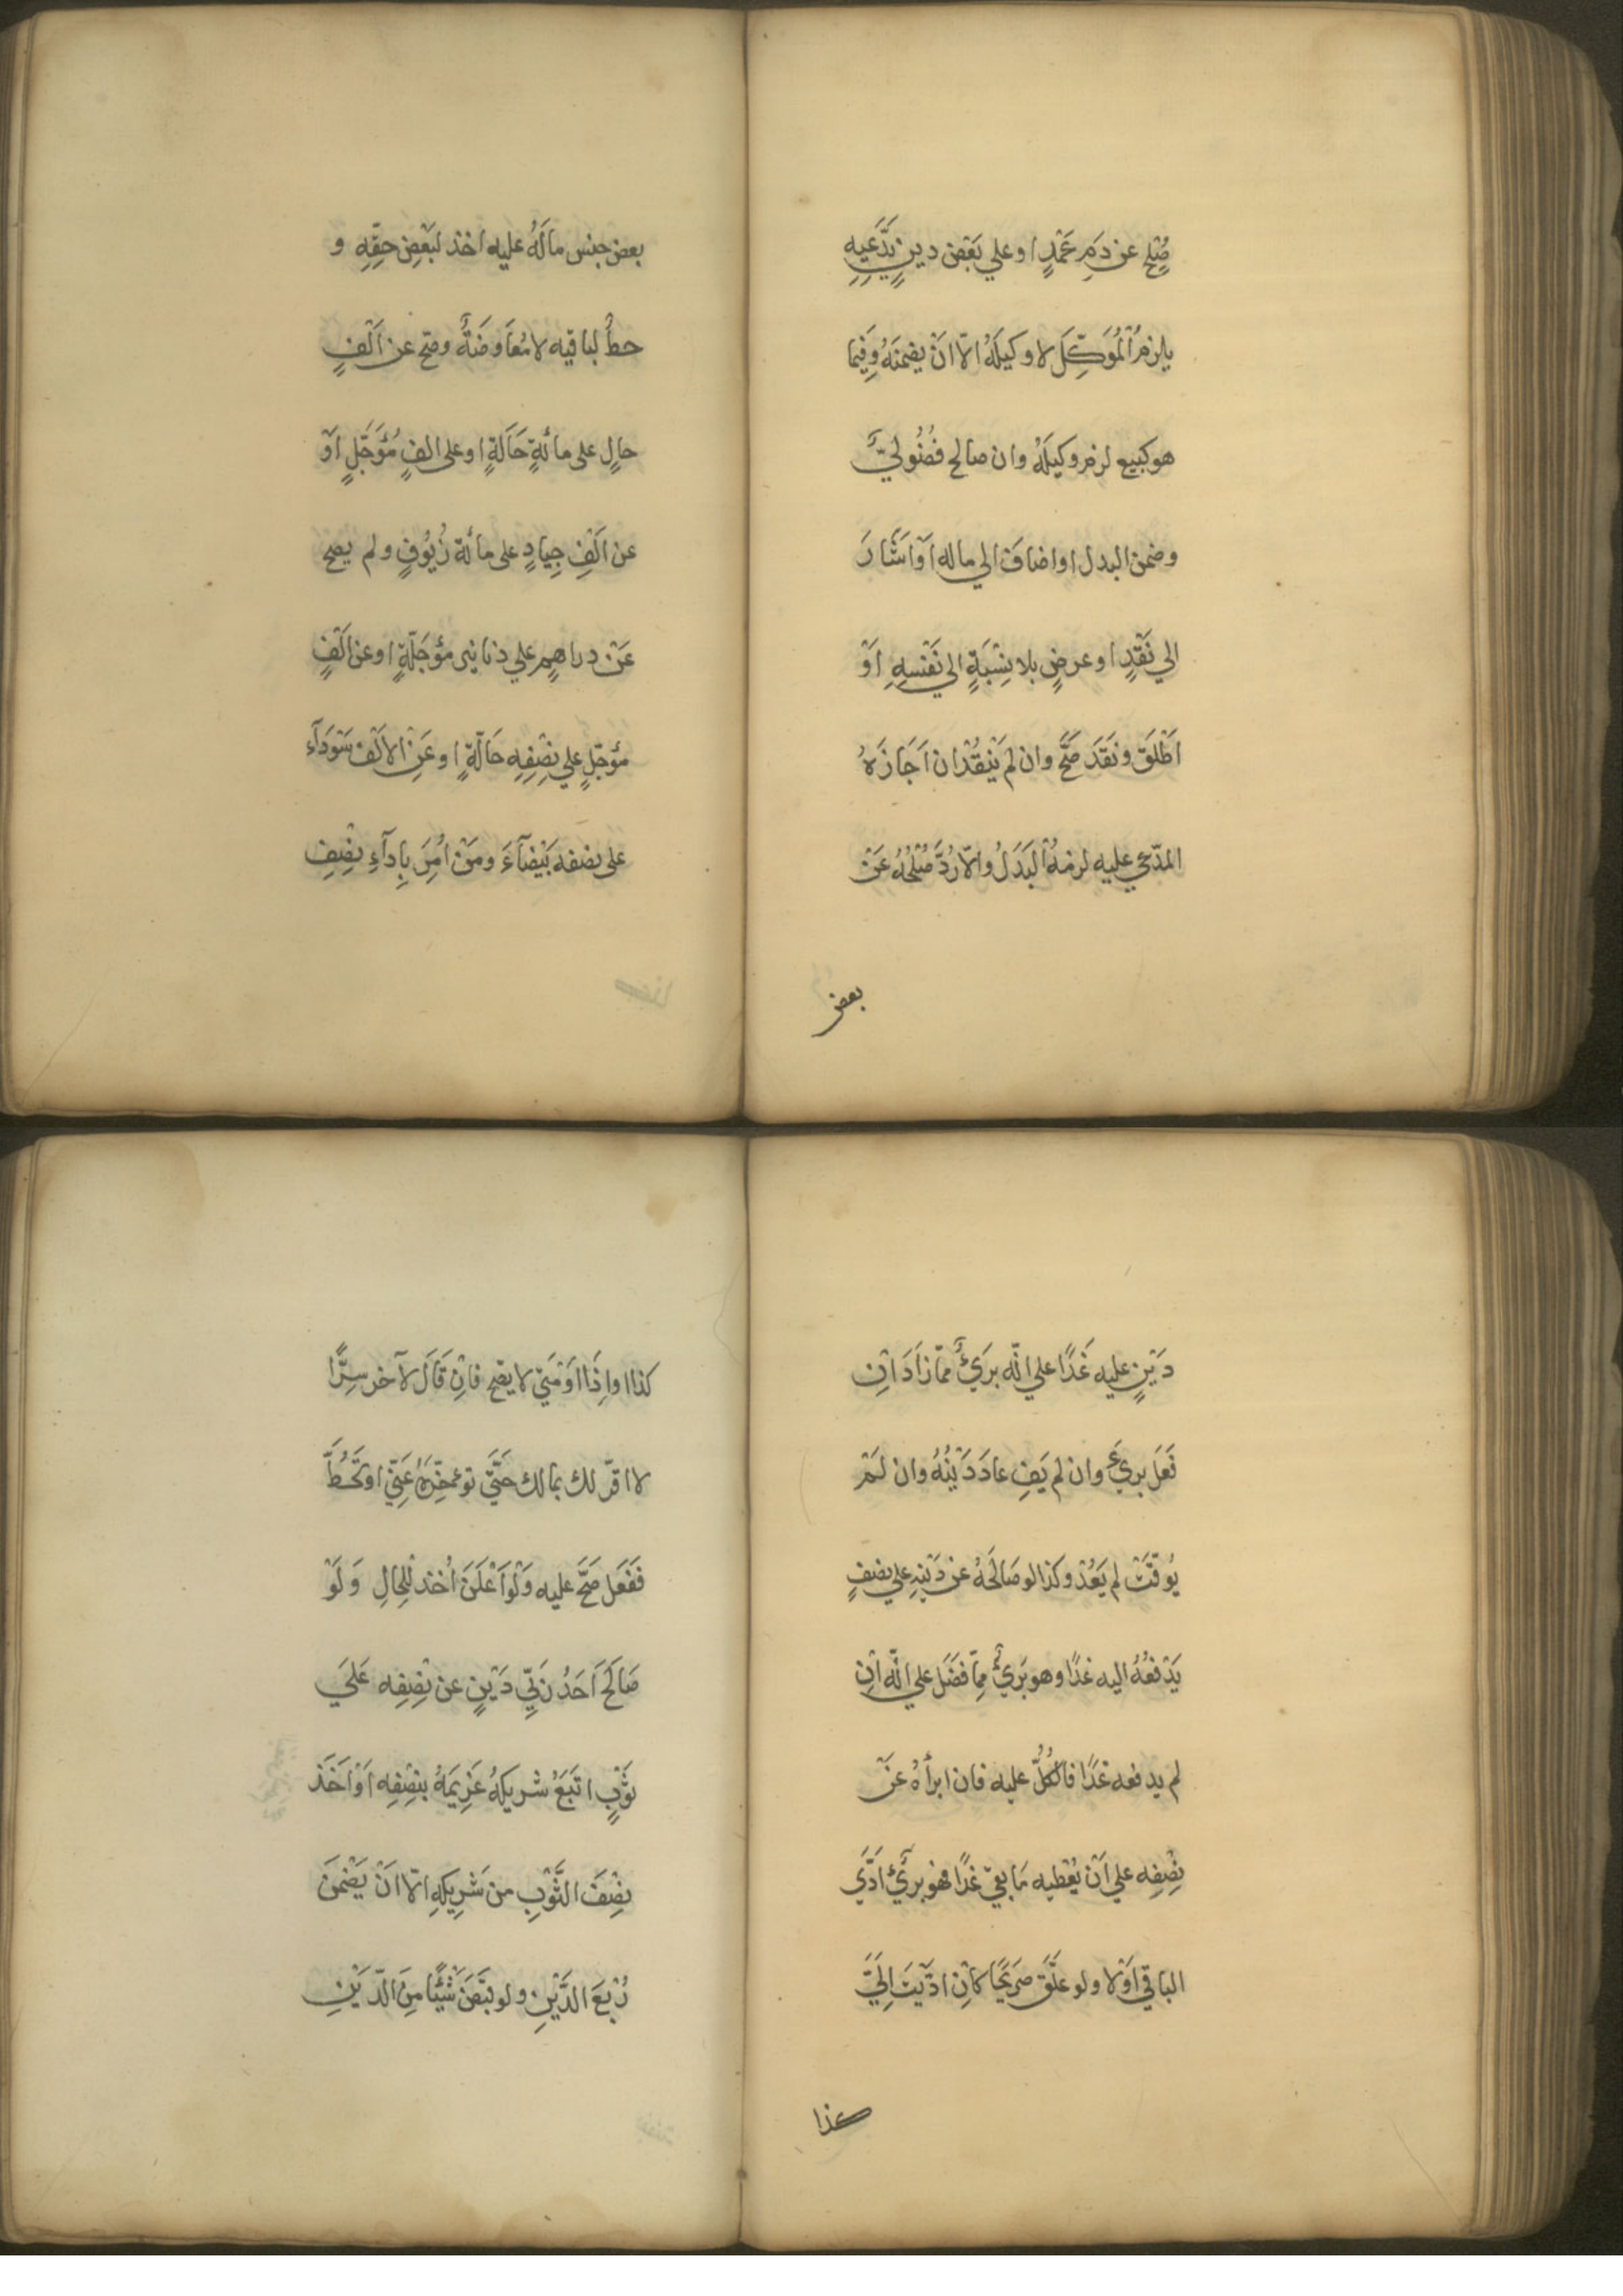 صُلْحٍ عن دَمِ عَمْدٍ او علي بَعْضِ دينٍ يَدَّعِيهِ
يلزمُ الْمُوَكِّلَ لا وكيلَهُ الّا انْ يضمنَهُ وفِيمَا
هو كبيع لزم وكيلَهُ وان صالح فُضُوليٌّ
وضمن البدل او اضافَ الي ماله اَوْ اَشَارَ
الي نَقْدٍ او عرضٍ بلا نِسْبَةٍ الي نَفْسِهِ اَوْ
اَطْلَقَ ونَقَدَ صَحَّ وان لم يَنْقُدْ ان اَجَازَهُ
المدّعي عليه لزمهُ الْبَدَلُ والّا رُدَّ صُلْحُهُ عَنْ
بعض
بعض جنس ما لَهُ عليه اخذ لبَعْضِ حقِّهِ و
حطُّ لباقيه لا مُعَاوضَةٌ وصحّ عن اَلْفٍ
حالٍ على مائةٍ حَالَةٍ او على الفٍ مُؤَجَّلٍ اَوْ
عن اَلْفٍ جِيادٍ على مائة زُيُوْفٍ ولم يصح
عَنْ دراهمٍ علي دنانير مؤجَلّةٍ او عن اَلْفٍ
مؤجّلٍ علي نِصْفِهِ حَالّةٍ او عَنِ الالْف سَوْدَآء
على نصفه بَيْضَآءَ ومَنْ اُمِرَ بِادآءِ نِصْفِ
دَيْنٍ عليه غَدًا علي انّه بَرَيٌ ممّا زَادَ اْنِ
فَعَلَ بريَ وان لم يَفِ عادَ دَيْنُهُ وان لَمْ
يُوقّتْ لم يَعُدْ وكذا لو صَالَحَهُ عن دَيْنِهِ علي نصْفٍ
يَدْفَعُهُ اليه غدًا وهو بَرِيٌ مِمّا فضَلَ علي انّه اْنِ
لم يدفعه غدًا فالكُلُّ عليه فان ابرأهُ عَنْ
نِصْفِه علي اَنْ يُعْطيه مَا بقي غدًا فهو بريٌ اَدَّي
الباقي اَوْلا ولو علَّق صَريْحًا كاْنِ ادّيْتَ اِلَيَّ
كذا
كذا او اِذَا اَوْ مَتي لا يصّح فانِ قَالَ لآخر سِرًّا
لا اقرّ لك بمالك حَتَّي توءخِّرَهُ عَنِّي او تَحُطَّ
فَفَعَل صَحَّ عليه وَلَو اَعْلَنَ اُخذ لِلْحالِ وَلَوْ
صَالَحَ اَحَدُ رَبَّي دَيْنٍ عن نِصْفِه عَلَي
ثَوْبٍ اتبَعَ شريكُهُ غَرِيمَهُ بنصْفِهِ اَوْ اَخَذَ
نِصْفَ الثَّوْبِ من شَرِيكِهِ الّا انْ يَضْمَنَ
رُبْعَ الدَّيْنِ ولو قبَضَ شَيْئًا مِنَ الدّيْنِ